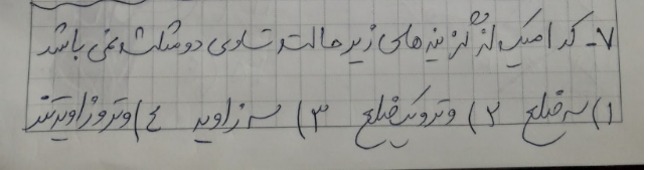 ۷- کدامیک از گزینه های زیر حالت تساوی دو مثلث نمی باشد
۱) سه ضلع ۲) وتر و یک ضلع ۳) سه زاویه ۴) وتر و زاویه تند